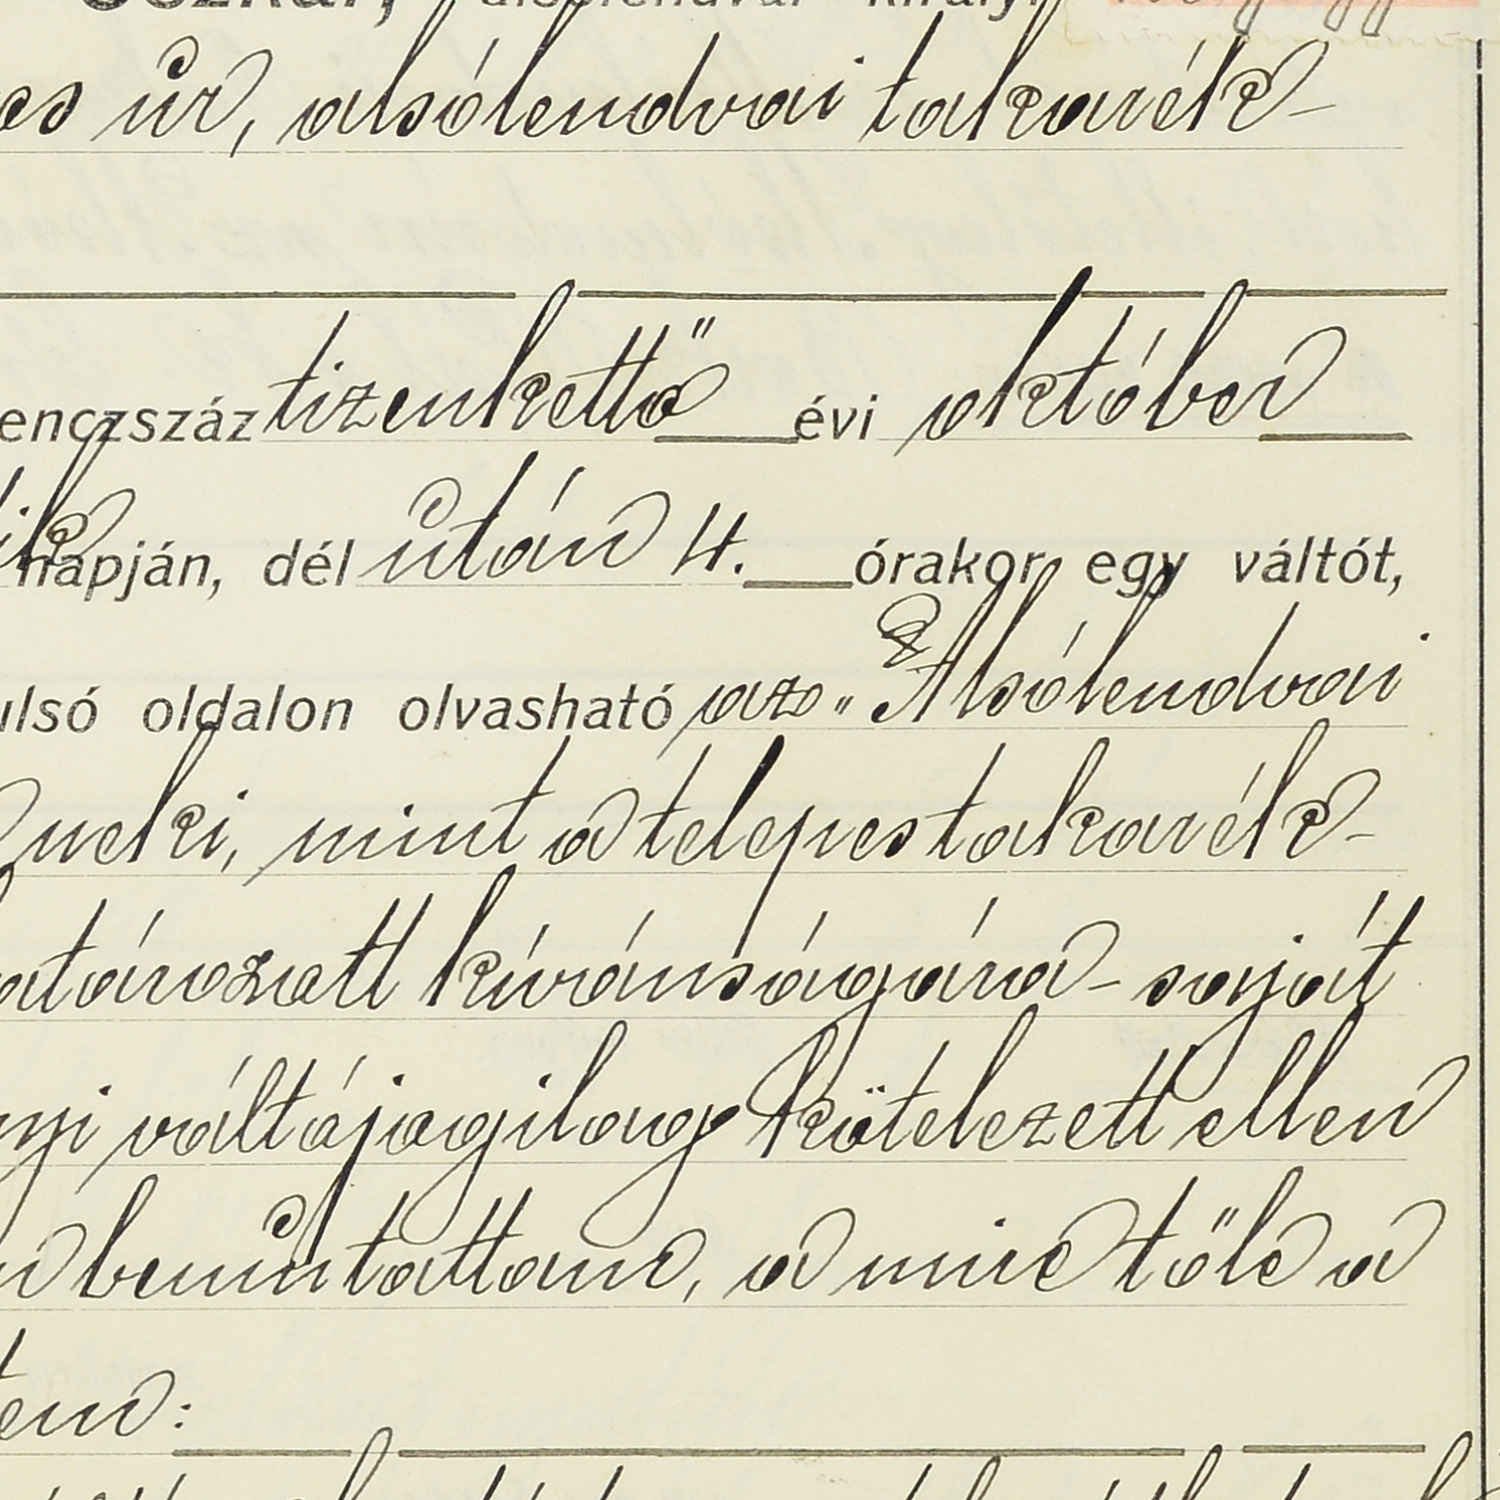 Oszkár, alsólendvai királyi
es úr, alsólendvai takarék-
enczszáz tizenkettő évi október
ik napján, dél után 4. órakor egy váltót,
ulsó oldalon olvasható az „Alsólendvai
neki, mint a telepes takarék-
atározatt kívánságára - saját
nyi váltójogilag kötelezett ellen
bemutattam, a mire tőle a
tem: